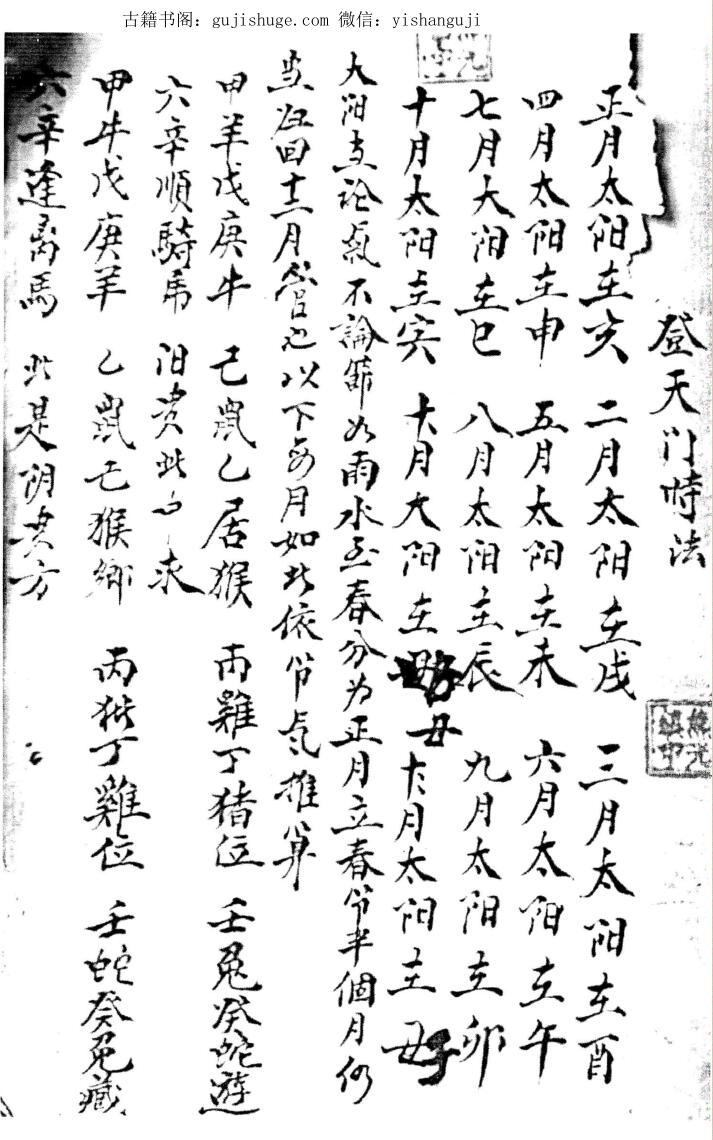 古籍书阁：gujishuge.com 微信：yishanguji
登天门時法
正月太阳在亥 二月太阳在戌 三月太阳在酉
四月太阳在申 五月太阳在未 六月太阳在午
七月太阳在巳 八月太阳在辰 九月太阳在卯
十月太阳在寅 十一月太阳在丑 十二月太阳在子
太阳在论氣不論節如雨水至春分为正月立春节半個月仍
回十二月管也以下每月如此依节气推算
甲羊戊庚牛 己鼠乙居猴 丙雞丁猪位 壬兔癸蛇遊
六辛順騎虎 阳贵此中求
甲牛戊庚羊 乙鼠己猴鄉 丙猪丁雞位 壬蛇癸兔藏
六辛逢离馬 此是阴贵方